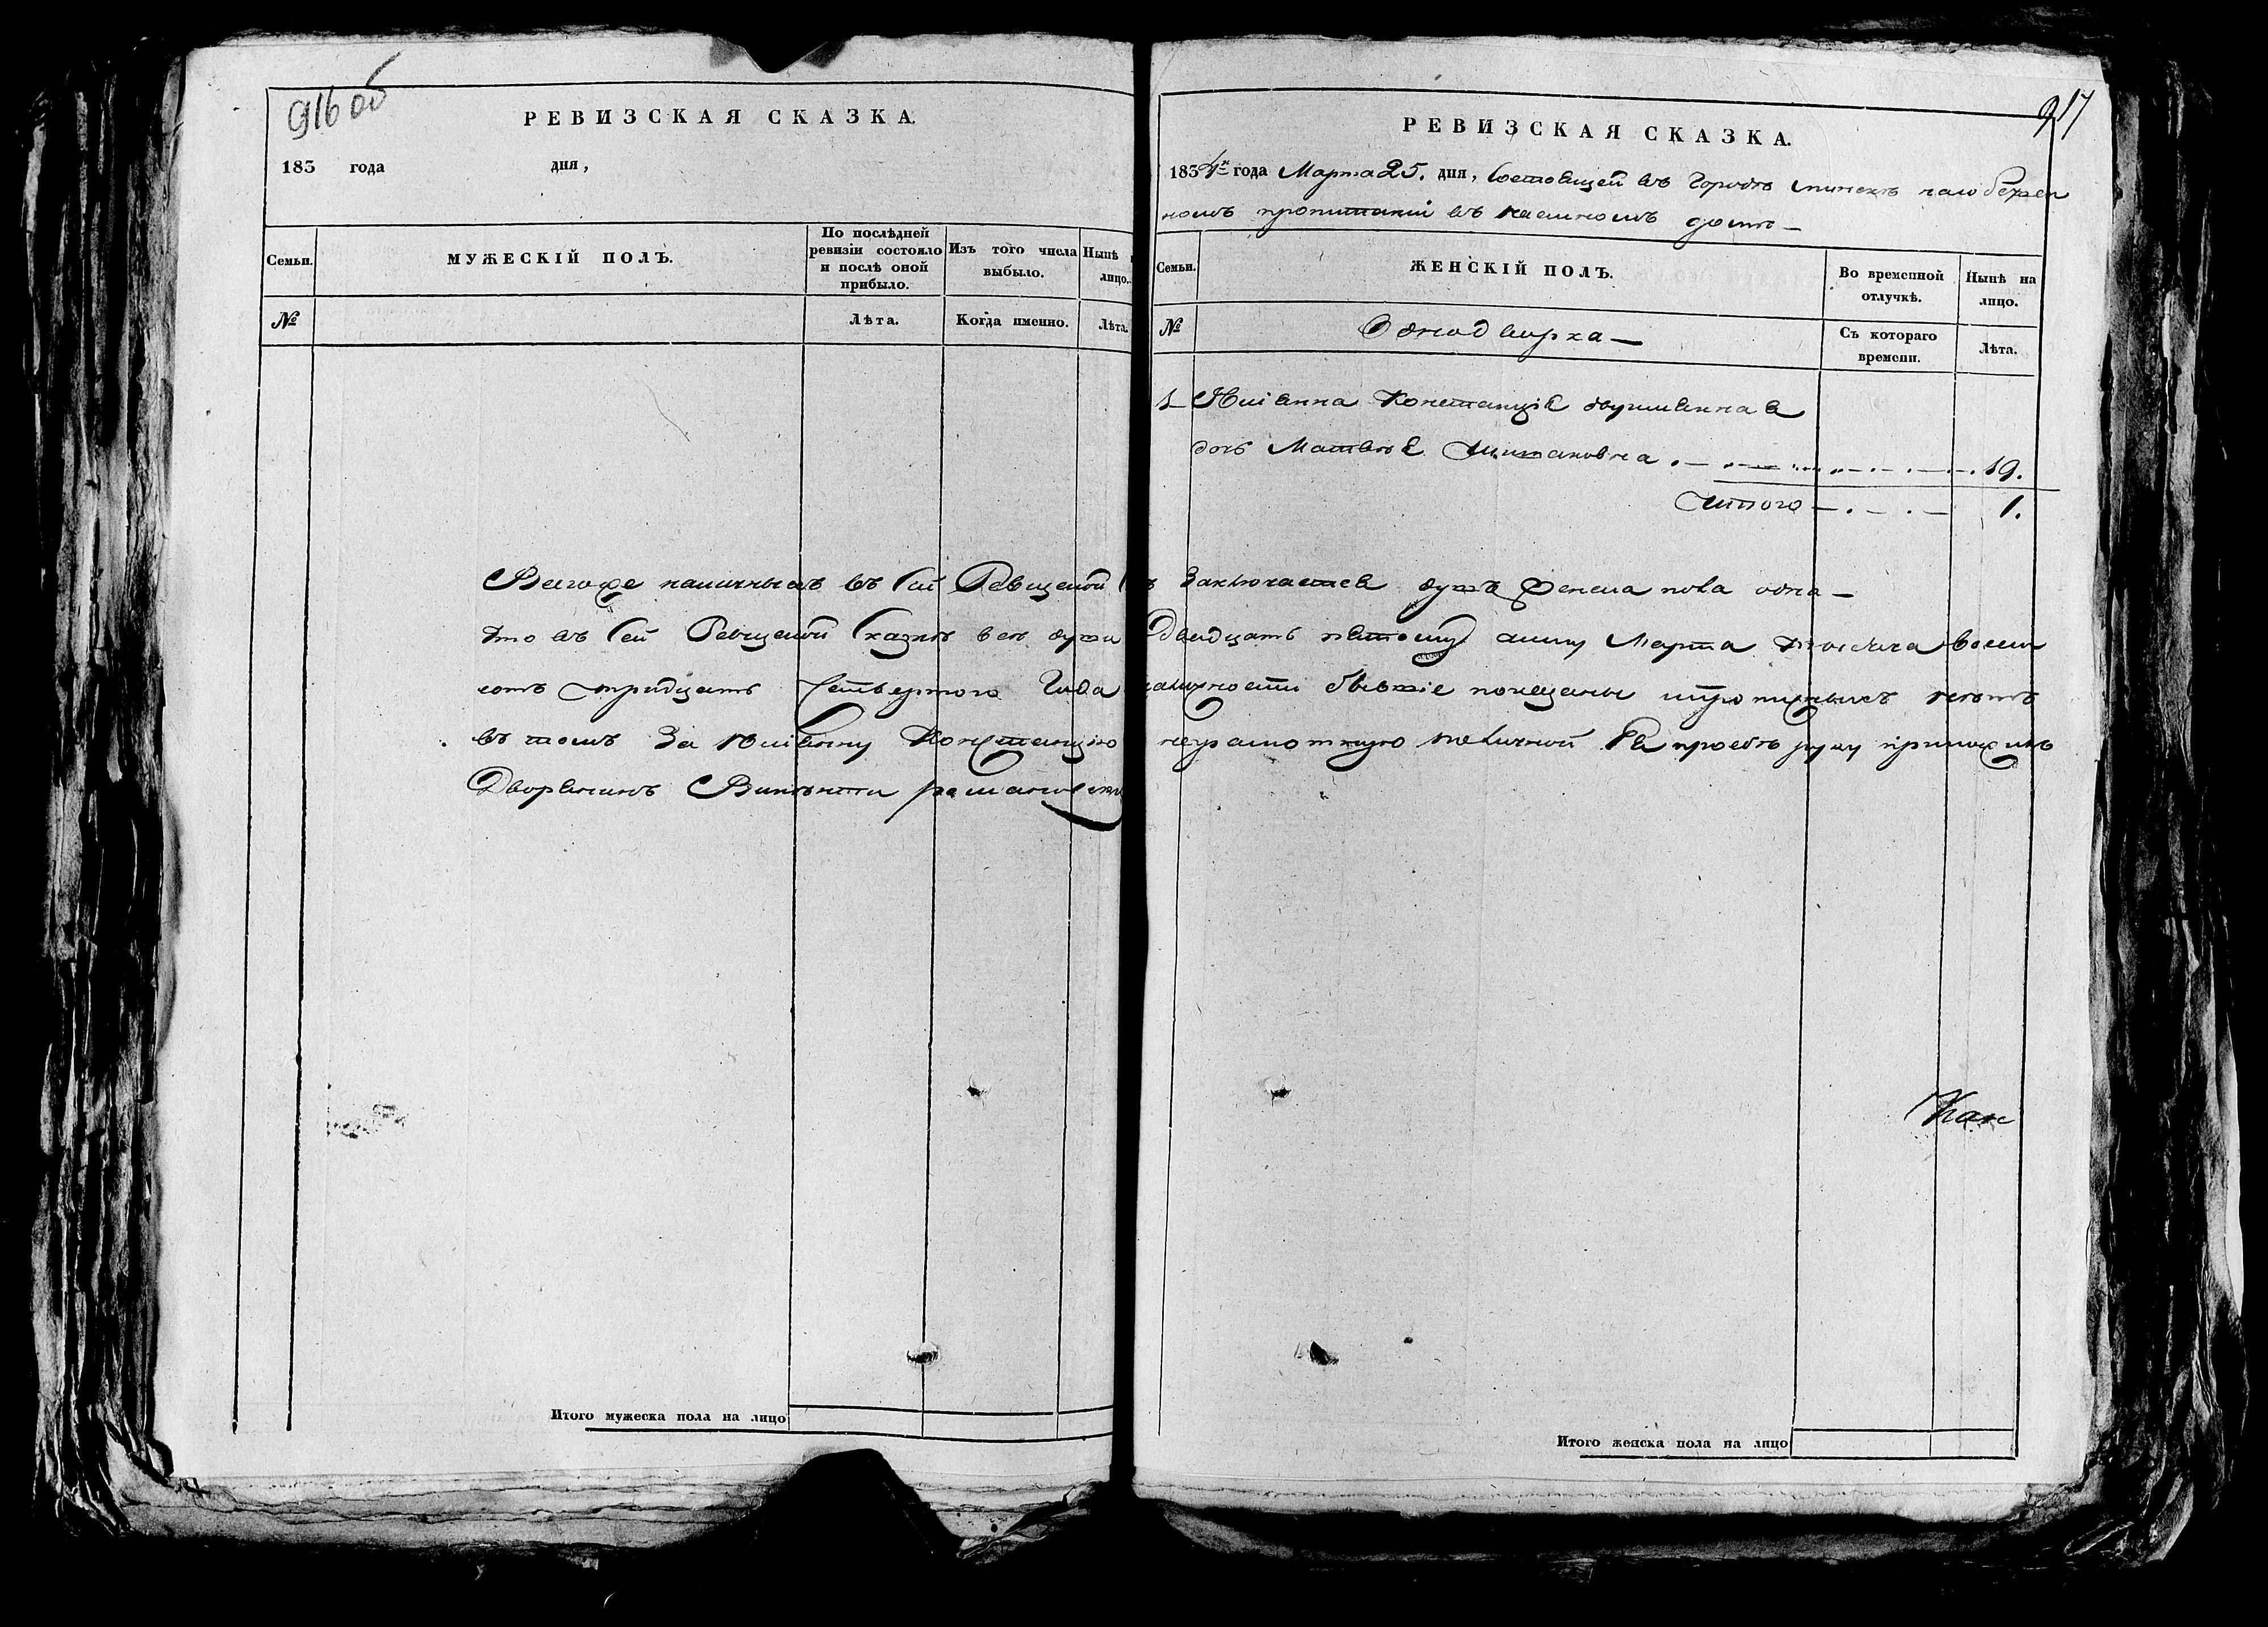 916 об
РЕВИЗСКАЯ СКАЗКА.
183 года дня,
Семьи.
МУЖЕСКІЙ ПОЛЪ.
По послѣдней ревизіи состояло и послѣ оной прибыло.
Изъ того числа выбыло.
Нынѣ
лицо.
№
Лѣта.
Когда именно.
Лѣта.
Итого мужеска пола на лицо
917
РЕВИЗСКАЯ СКАЗКА.
1834го года Марта 25. дня, Состоящей въ Городѣ Минскѣ
номъ пропитаніи въ наемномъ домѣ
Семьи.
ЖЕНСКІЙ ПОЛЪ.
Во временной отлучкѣ.
Нынѣ на лицо.
№
Однодворка
Съ котораго времени.
Лѣта.
1 Юліанна Констанція двуименная
дочь Матвѣя 19.
Итого 1.
Всего же наличныхъ въ Сей Ревизской заключается душъ женска пола одна
Что въ Сей Ревизской Сказкѣ всѣ души Двадцать пятому числу Марта тысяча восем
сотъ тридцать Четвертого Года наличности бывшіе показаны и пропущеныхъ нетъ
въ томъ За Юліанну Констанцію неграмотную по личной Ея прозбѣ руку приложилъ
Дворянинъ Викентій
Как
Итого женска пола на лицо